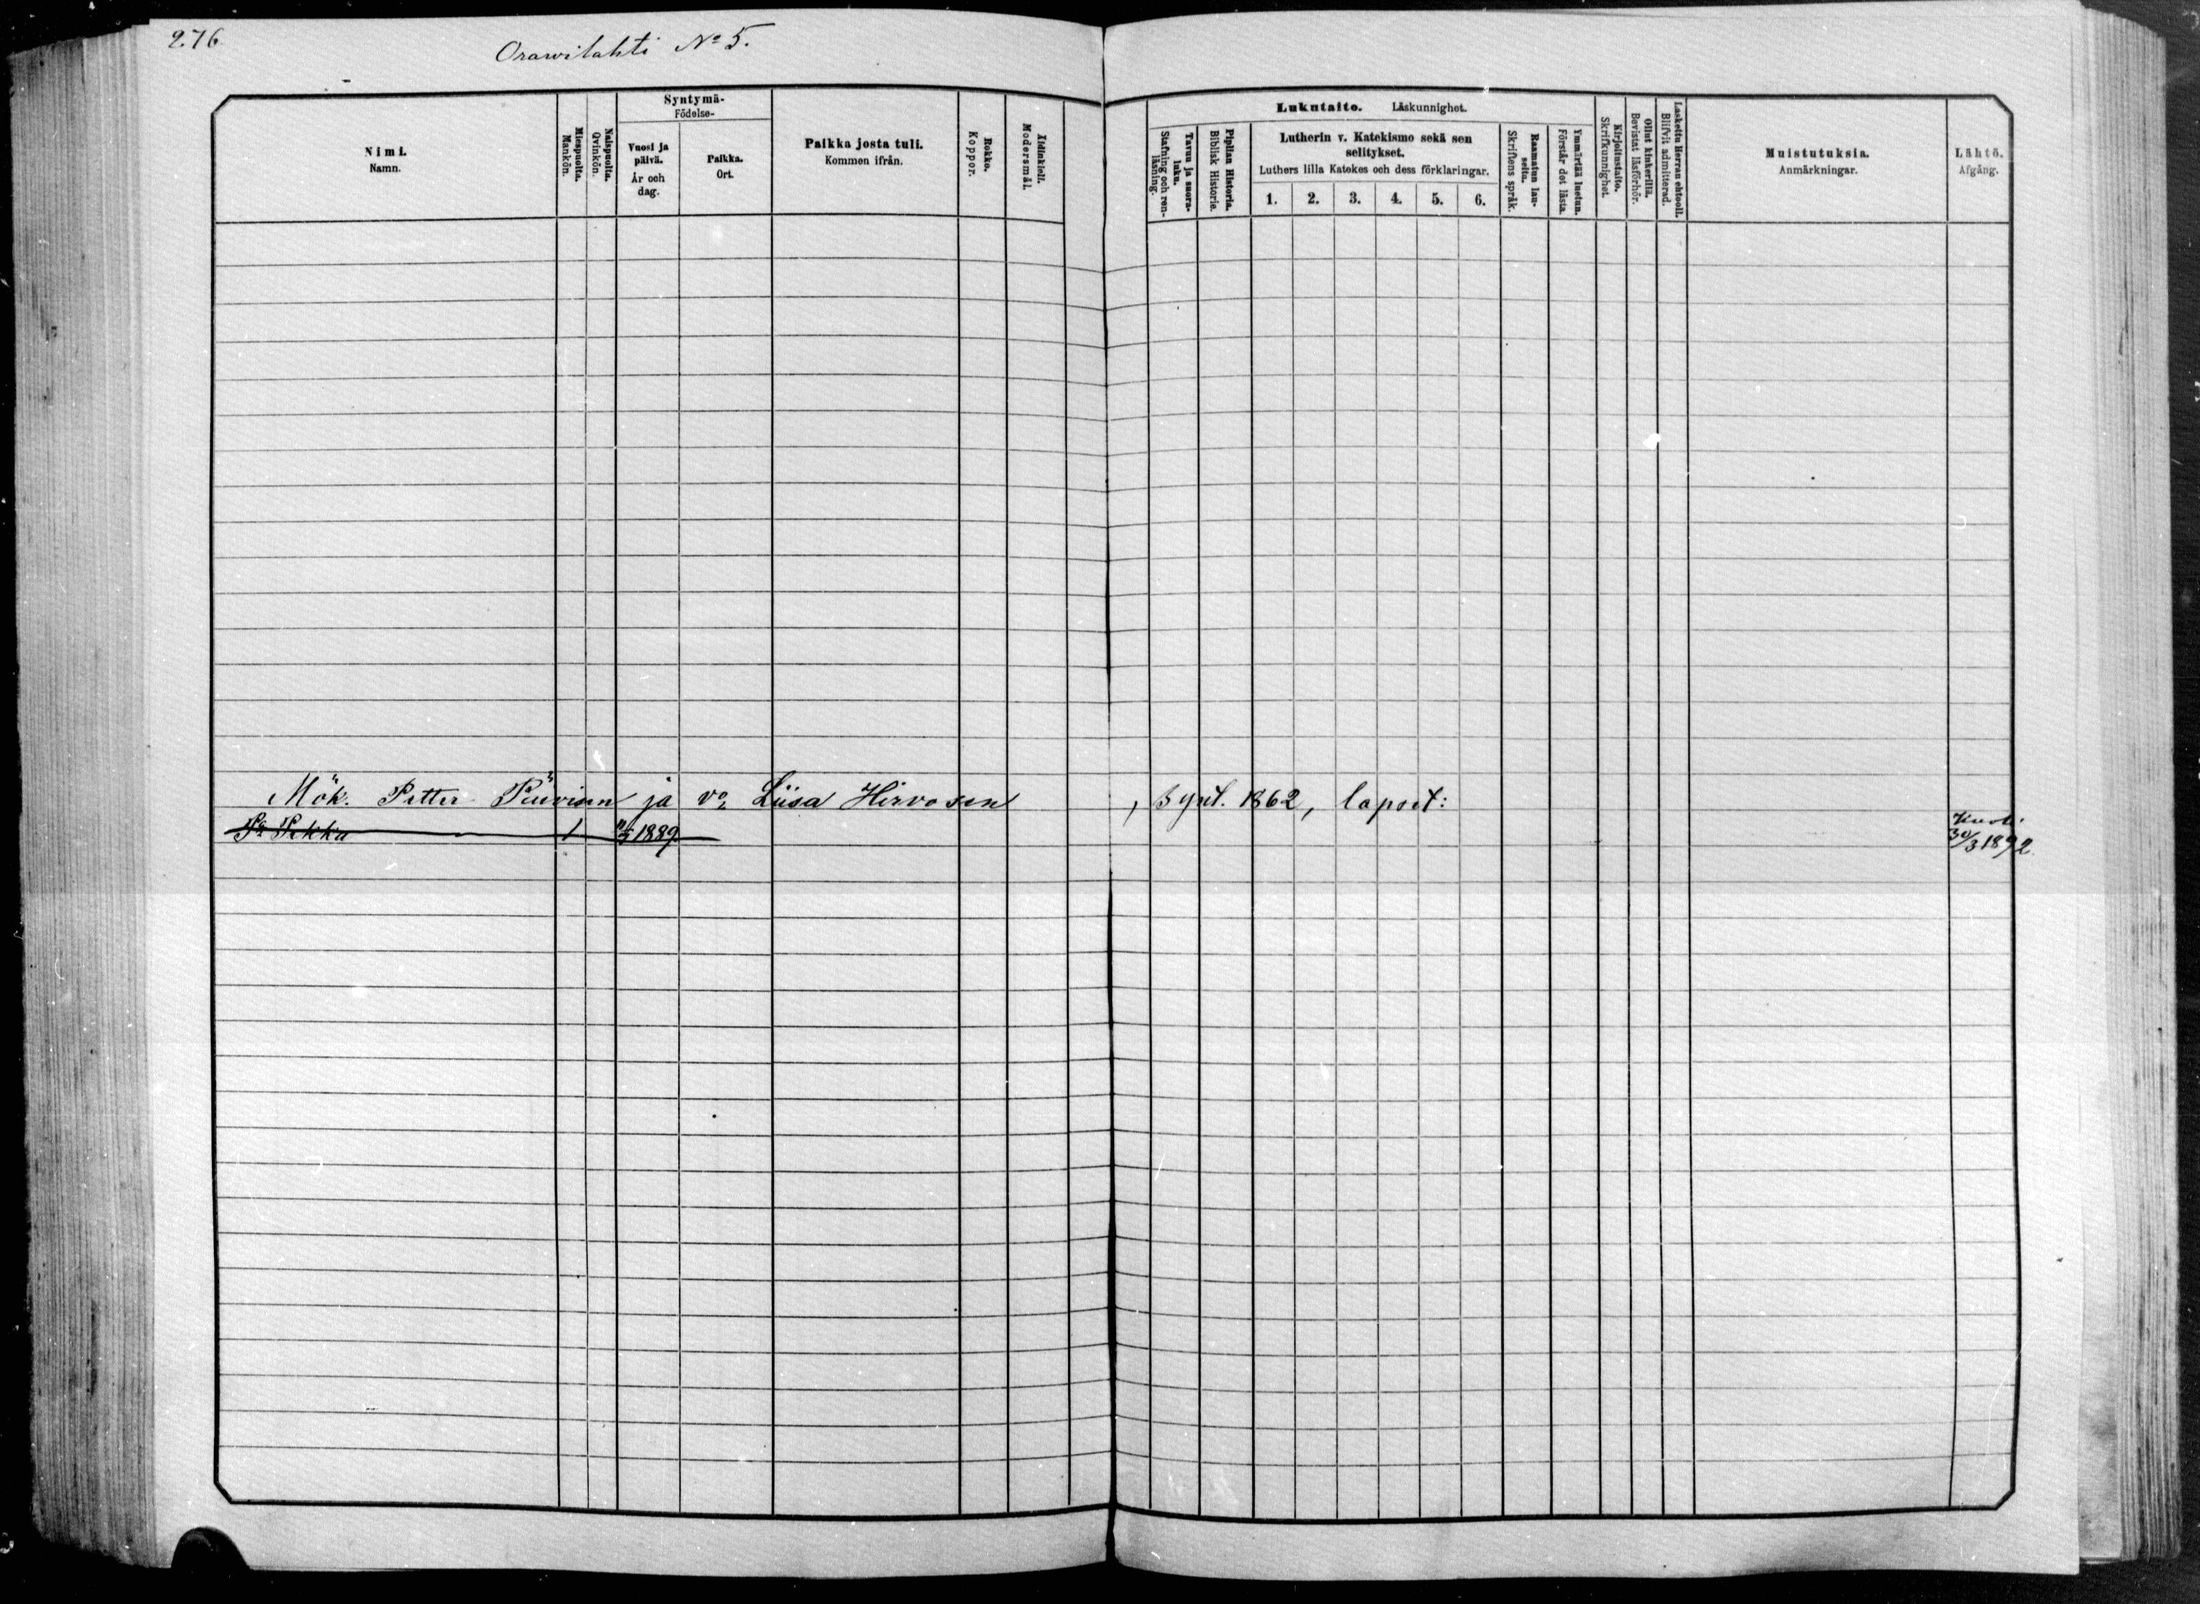 276
Orawilahti No 5.
Nimi.
Namn.
Miespuolta.
Mankön.
Naispuolta.
Qvinkön.
Syntymä-
Födelse-
Vuosi ja
päivä.
År och
dag.
Paikka.
Ort.
Paikka josta tuli.
Kommen ifrån.
Rokko.
Koppor.
Äidinkieli.
Modersmål.
Lukutaito. Läskunnighet.
Tavuu ja suora-
luku.
Stafning och ren-
läsning.
Piplian Historia.
Biblisk Historie.
Lutherin v. Katekismo sekä sen
selitykset.
Luthers lilla Katekes och dess förklaringar.
1. 2. 3. 4. 5. 6.
Raamatun lau-
seita.
Skriftens språk.
Ymmärtää luetun.
Förstår det lästa.
Kirjoitustaito.
Skrifkunnighet.
Ollut kinkerillä.
Bevistat läsförhör.
Laskettu Herran ehtooll.
Blifvit admitterad.
Muistutuksia.
Anmärkningar.
Lähtö.
Afgång.
Mök. Petter ja vo Liisa Hirvosen, synt. 1862, lapset:
Pa Pekka 1 11/5 1889
Kuoli
30/3 1892